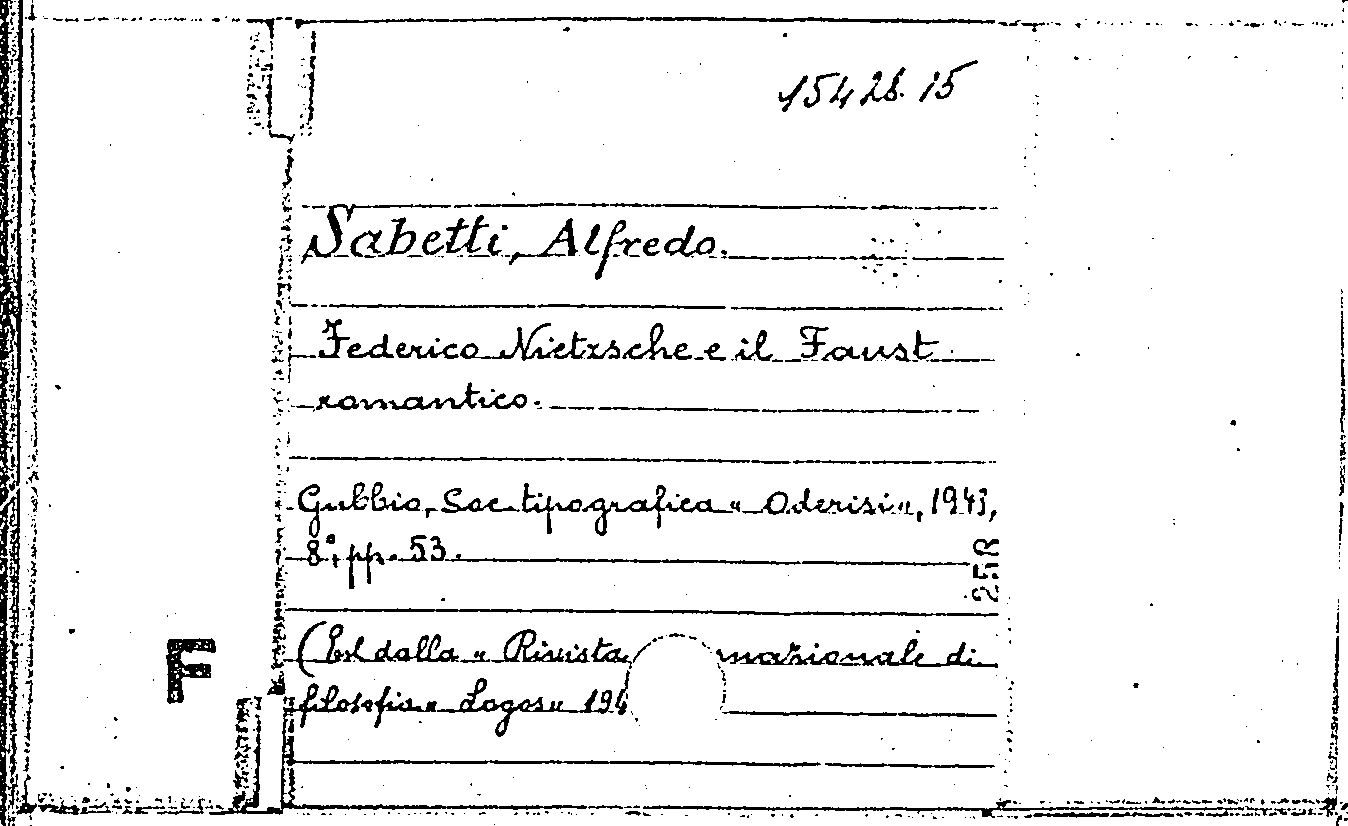 15428.15
Sabetti, Alfredo.
Federico Nietzsche e il Faust
romantico.
Gubbio, Soc. tipografica « Oderisi «, 1943,
8°, pp. 53.
25R
(Est. dalla « Rivista nazionale di
filosofia « Logos « 194
F